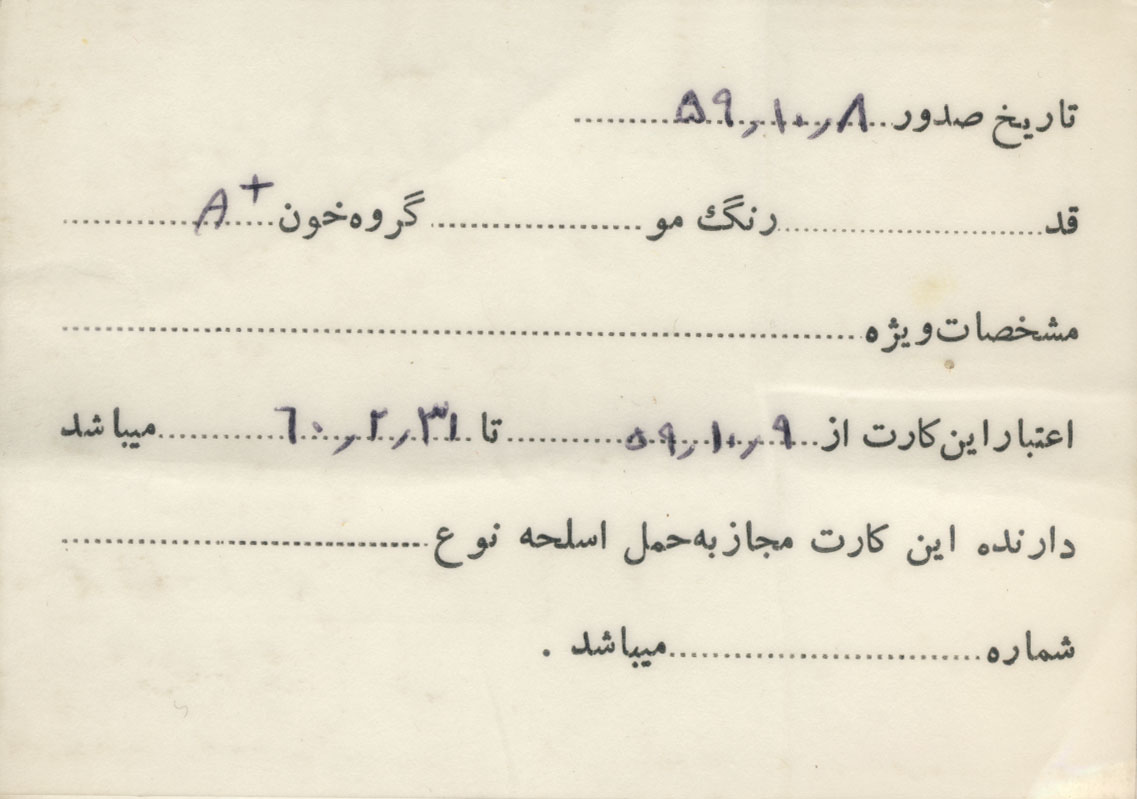 تاریخ صدور ۵۹٫۱۰٫۸
قد رنگ مو گروه خون A+
مشخصات ویژه
اعتبار این کارت از ۵۹٫۱۰٫۹ تا ۶۰٫۲٫۳۱ میباشد
دارنده این کارت مجاز به حمل اسلحه نوع
شماره میباشد .